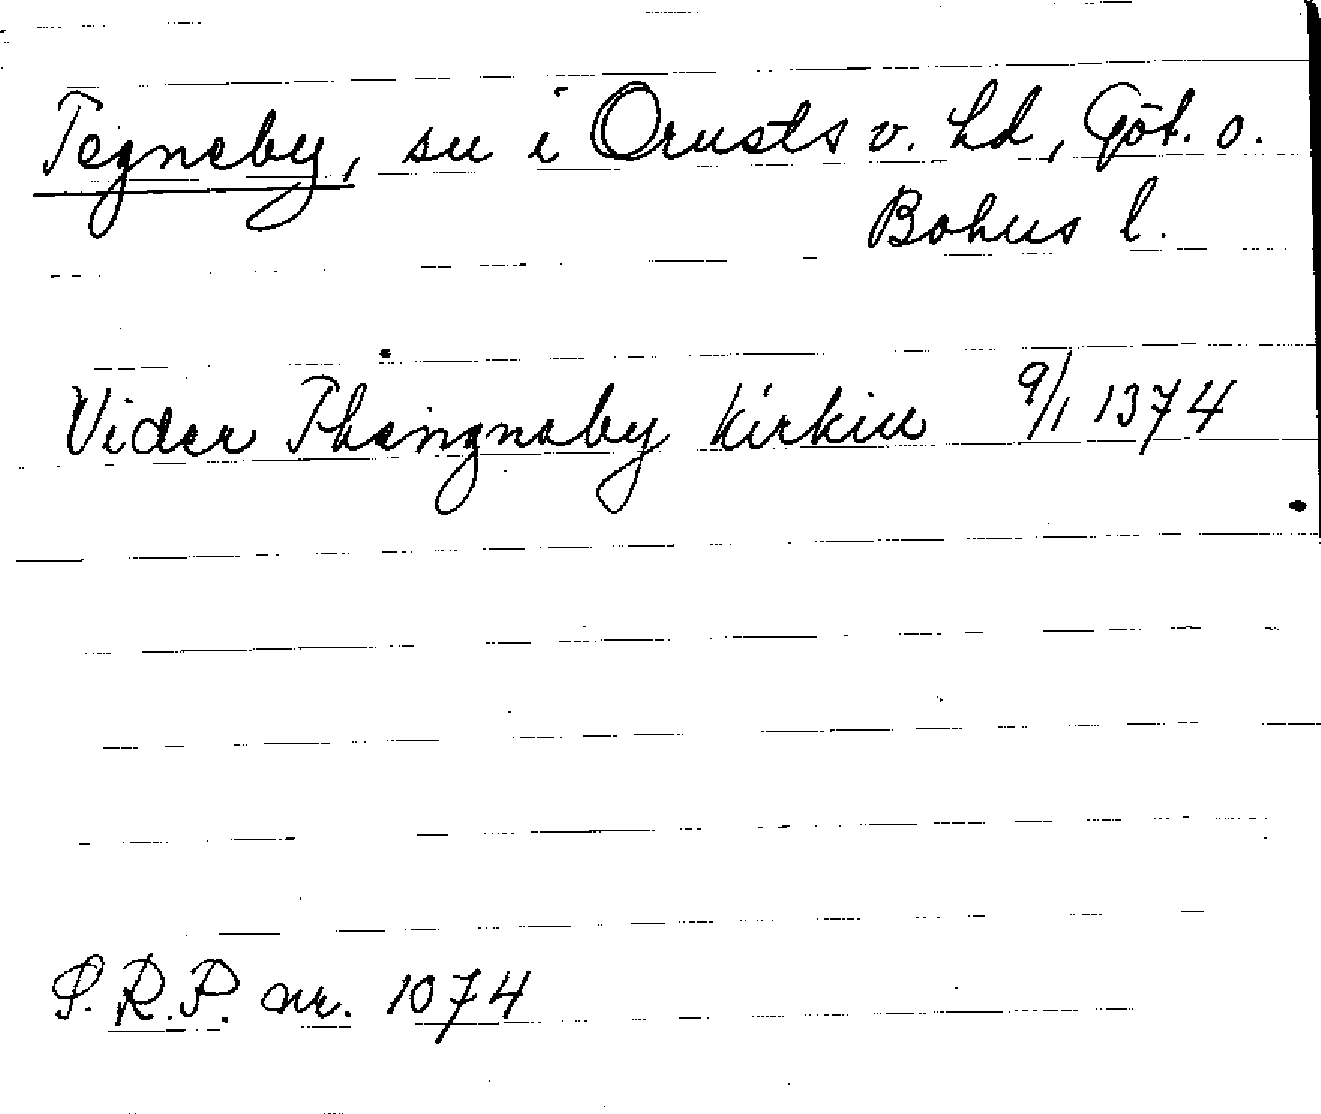 Tegneby, sn i Orusts v. hd, Göt. o.
Bohus l.
Vider Thængnaby kirkiu 9/1 1374
S.R.P. nr. 1074